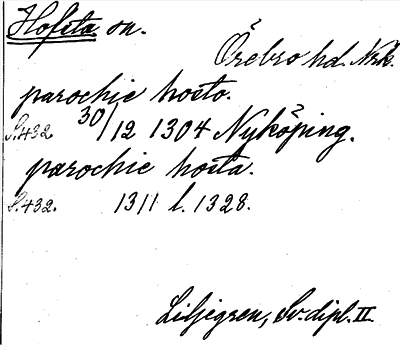 Hofsta sn.
Örebro hd. Nrk.
parochie hosto.
S.432 30/12 1304 Nyköping.
parochie hosta.
S.432. 1311 l. 1328.
Liljegren, Sv. dipl. II.